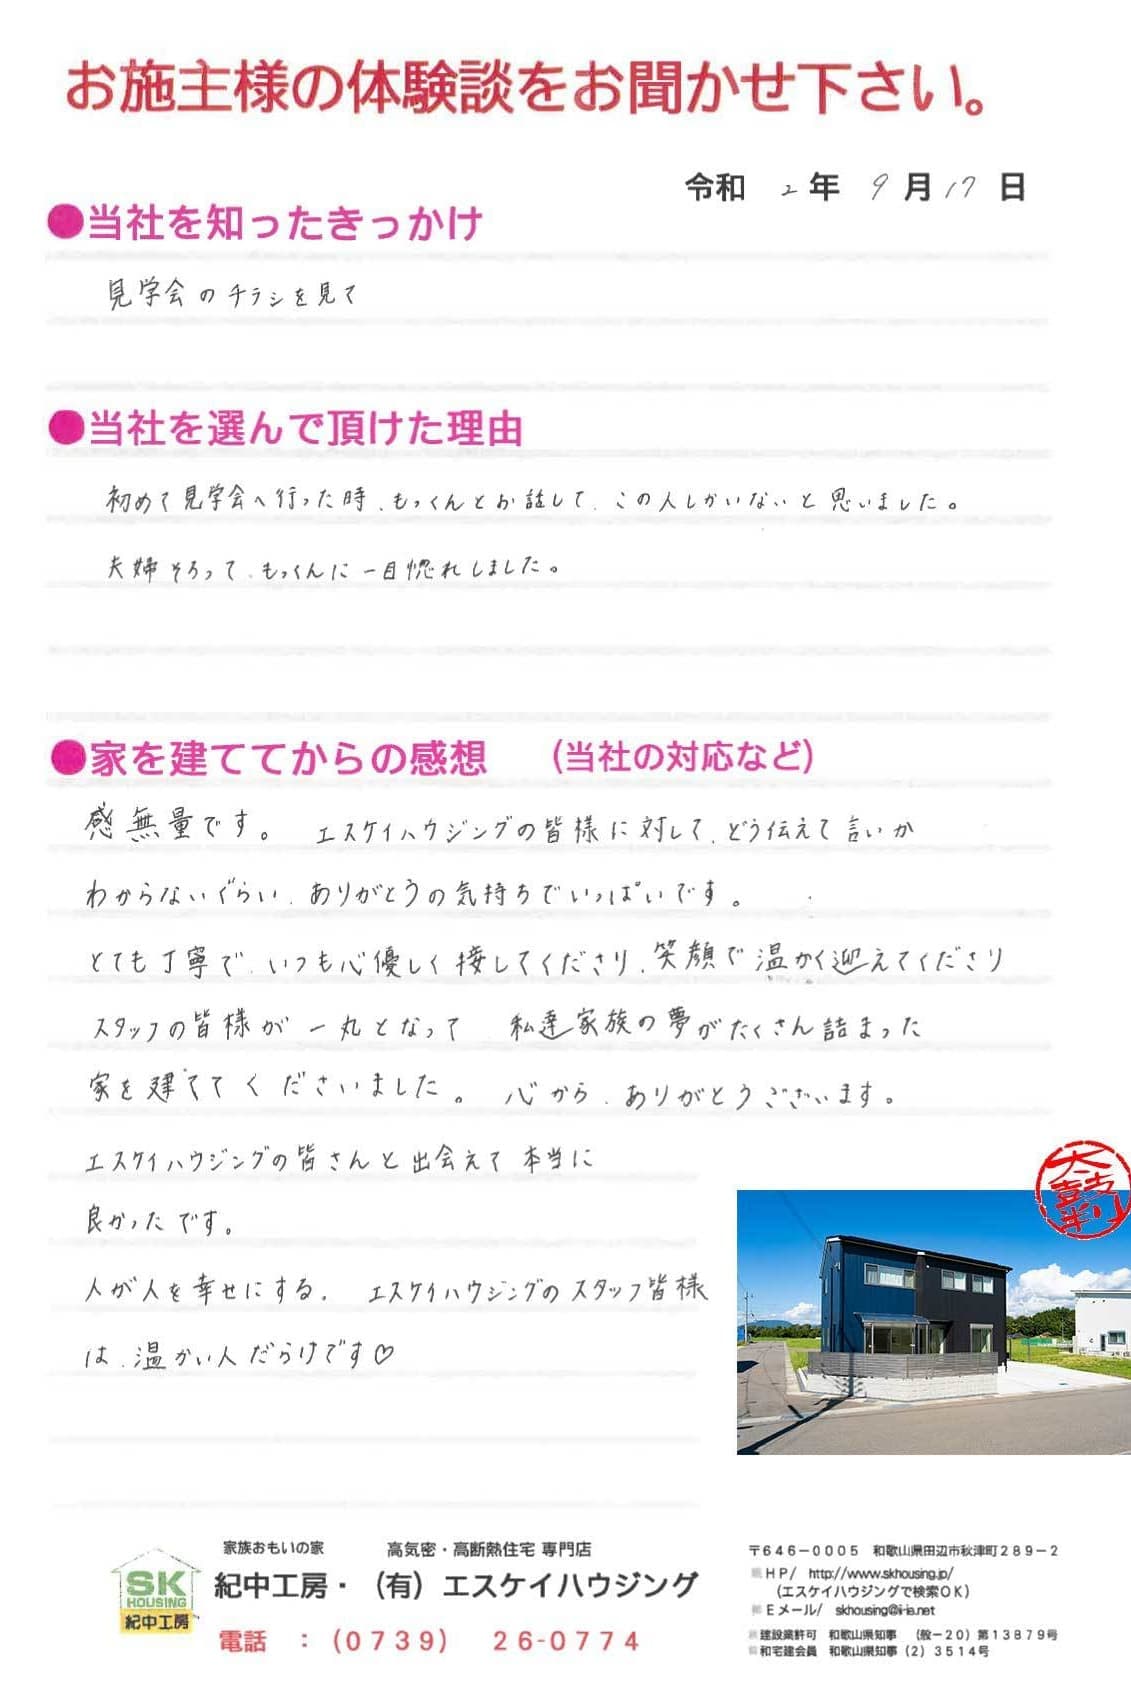 お施主様の体験談をお聞かせ下さい。
令和 2年 9月17日
●当社を知ったきっかけ
見学会のチラシを見て
●当社を選んで頂けた理由
初めて見学会へ行った時、もっくんとお話して、この人しかいないと思いました。
夫婦そろって、もっくんに一目惚れしました。
●家を建ててからの感想 (当社の対応など)
感無量です。 エスケイハウジングの皆様に対して、どう伝えて言いか
わからないぐらい、ありがとうの気持ちでいっぱいです。
とても丁寧で、いつも心優しく接してくださり、笑顔で温かく迎えてくださり
スタッフの皆様が一丸となって 私達家族の夢がたくさん詰まった
家を建ててくださいました。 心から、ありがとうございます。
エスケイハウジングの皆さんと出会えて本当に
良かったです。
人が人を幸せにする。 エスケイハウジングのスタッフ皆様
は、温かい人だらけです♡
家族おもいの家 高気密・高断熱住宅 専門店
SK
HOUSING
紀中工房
紀中工房・(有)エスケイハウジング
電話 :(0739) 26-0774
〒646-0005 和歌山県田辺市秋津町289-2
HP/ http://www.skhousing.jp/
(エスケイハウジングで検索OK)
Eメール/ skhousing@i-ie.net
建設業許可 和歌山県知事 (般-20)第13879号
和宅建会員 和歌山県知事(2)3514号